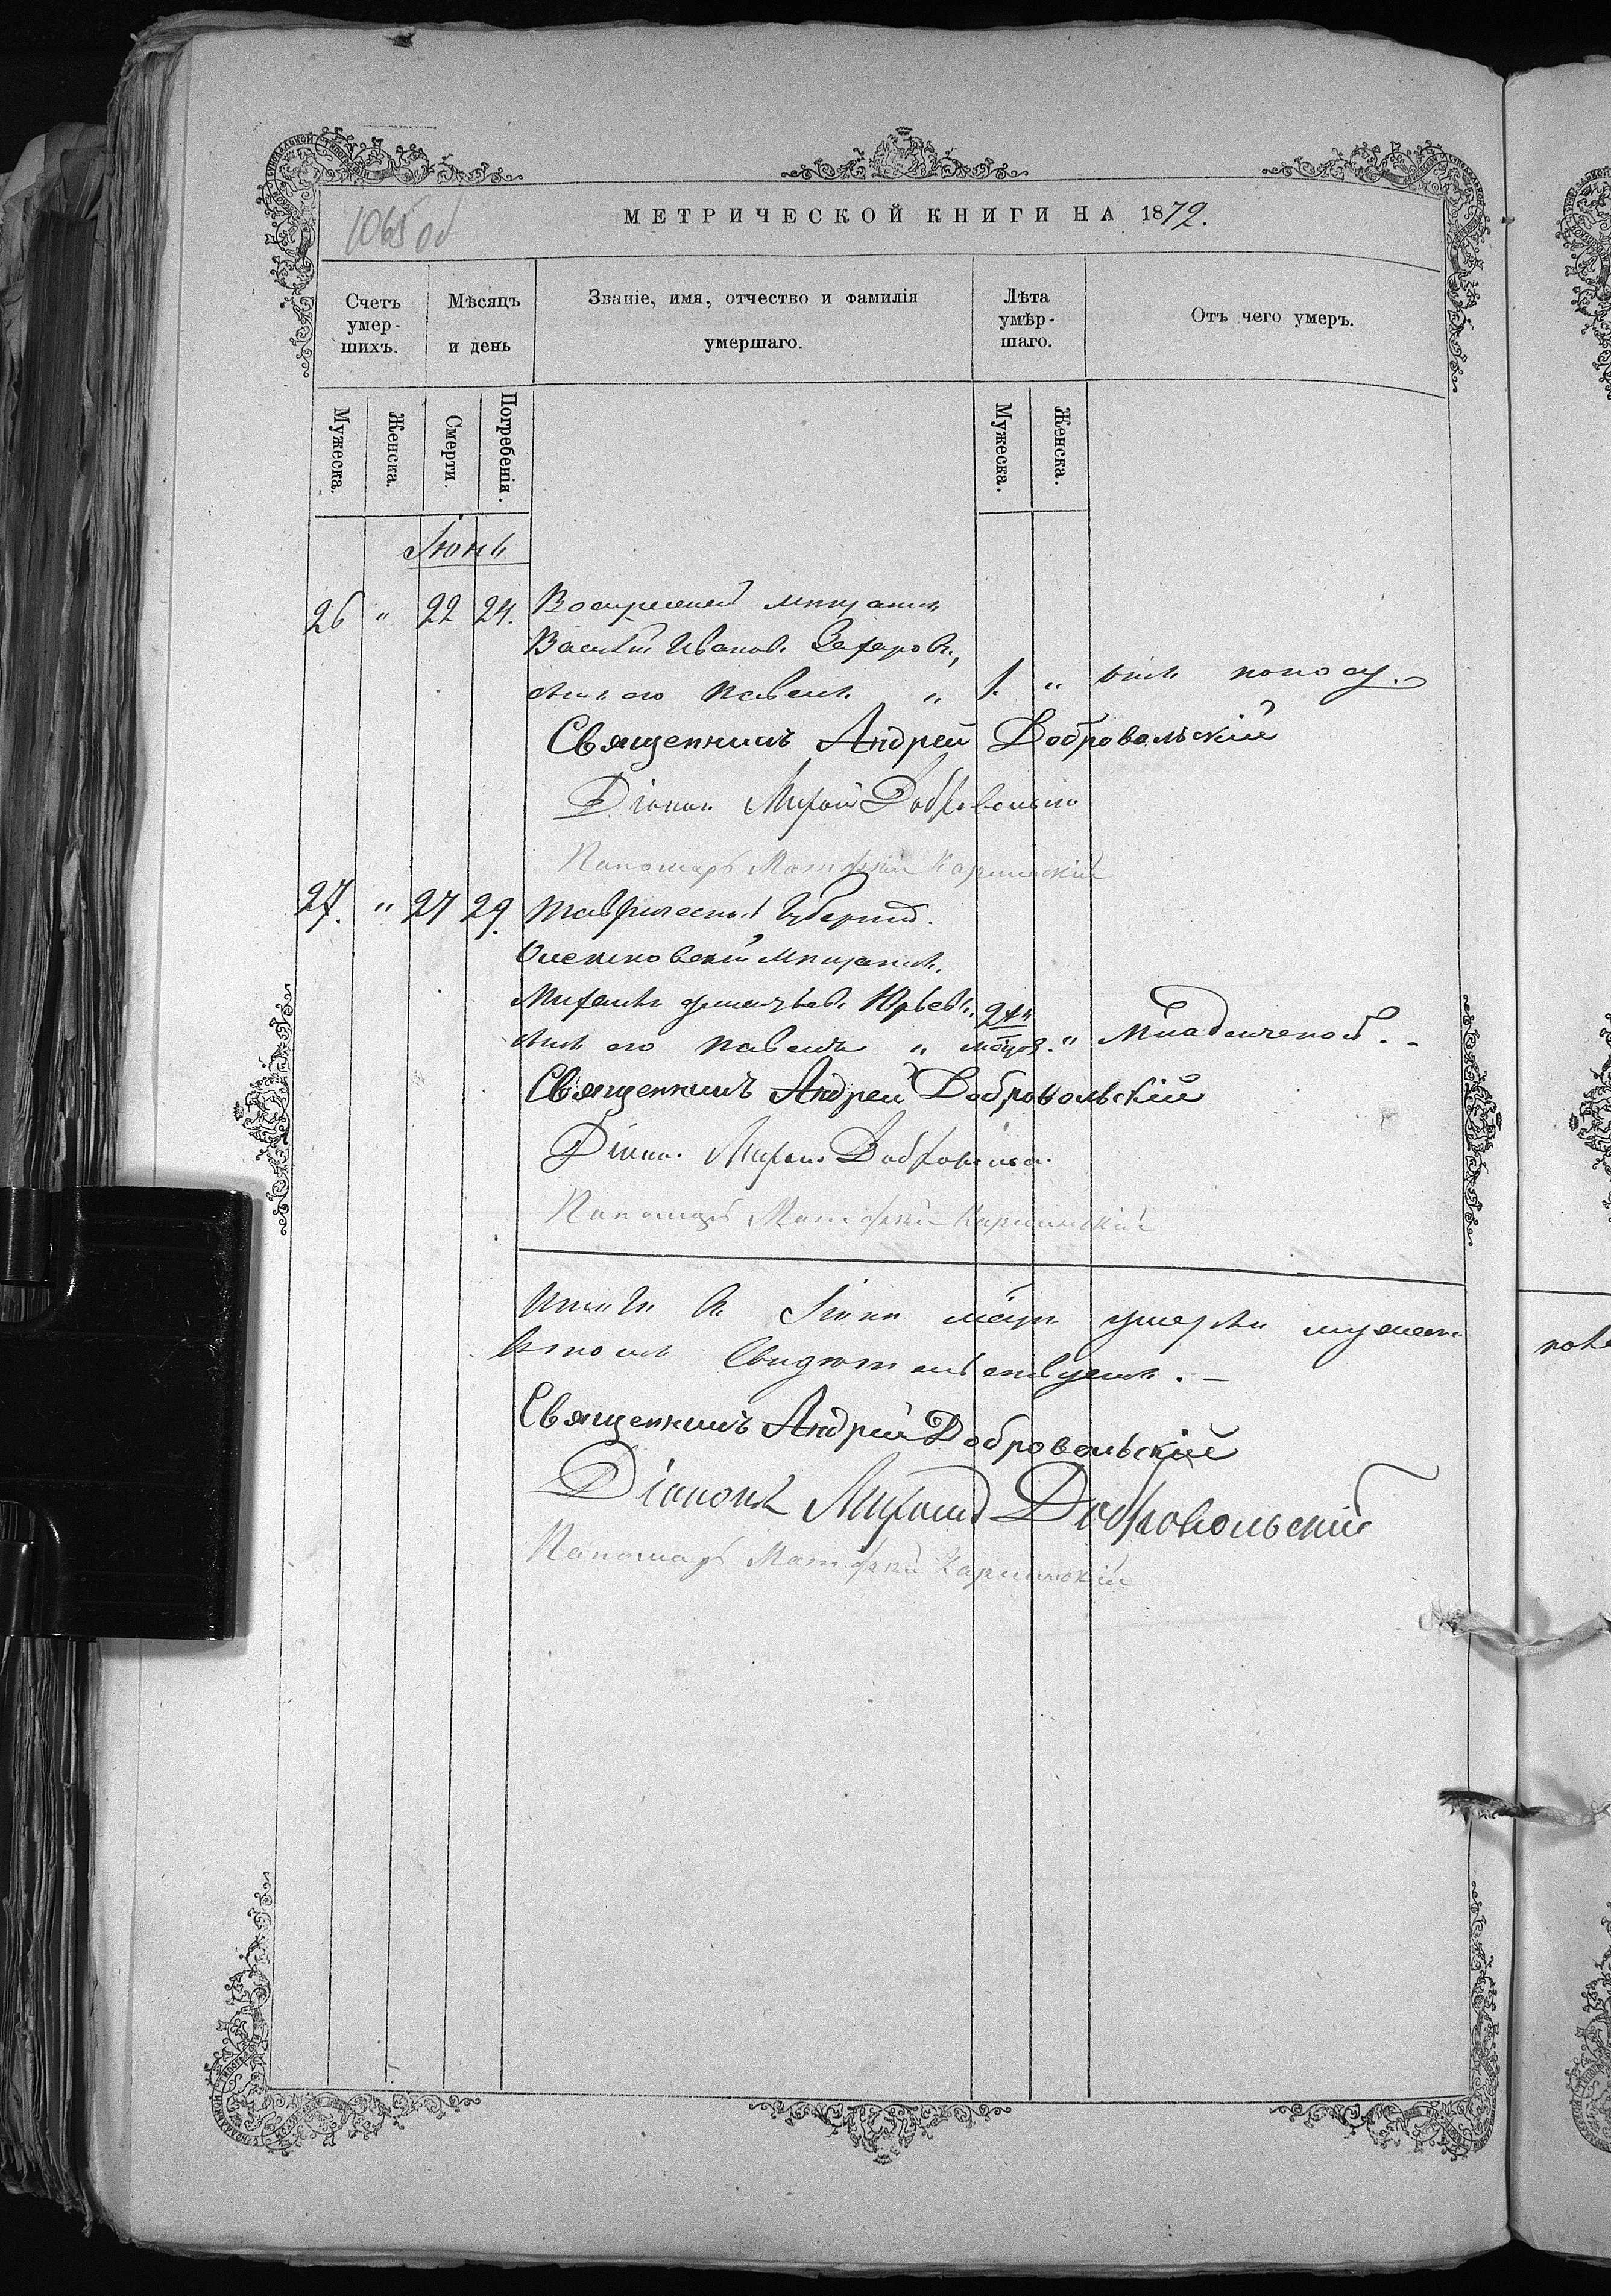 1065 об
МЕТРИЧЕСКОЙ КНИГИ НА 1872.
Счетъ умер-шихъ.
Мѣсяцъ и день
Званіе, имя, отчество и фамилія умершаго.
Лѣта умѣр-шаго.
Отъ чего умеръ.
Мужеска.
Женска.
Смерти.
Погребенія.
Мужеска.
Женска.
Іюнь
26 " 22 24. мѣщанинъ
Василій Ивановъ Захаровъ,
сынъ его Павелъ " 1. " отъ поносу.
Священникъ Андрей Добровольскій
Діаконъ Добровольскій
Пономарь Матфей
27. " 27 29. Таврической Губерніи.
мѣщанинъ
Михаилъ Юрьевъ,
сынъ его Павелъ " 2 " младенческой. -
Священникъ Андрей Добровольскій
Діаконъ Добровольскій
Пономарь Матфей
Итого въ Іюнѣ мѣсяцѣ умерло мужеска
въ томъ свидѣтельствуемъ. -
Священникъ Андрей Добровольскій
Діаконъ Добровольскій
Пономарь Матфей